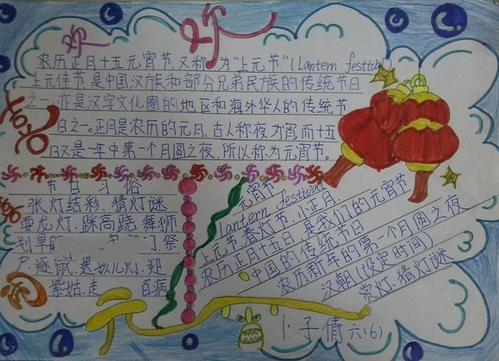 欢
农历正月十五元宵节,又称为"上元节"(Lantern festival)
上元佳节是中国汉族和部分兄弟民族的传统节日
之一,亦是汉字文化圈的地区和海外华人的传统节
日之一。正月是农历的元月,古人称夜为宵而十五
日又是一年中第一个月圆之夜,所以称为元宵节。
节日习俗
张灯结彩、猜灯谜
耍龙灯、踩高跷、舞狮
划旱
祭
户、逐鼠、送孩儿灯、迎
紫姑、走
百病
元宵节
Lantern festival
上元节、春灯节、小正月、
农历正月十五日是我们的元宵节
中国的传统节日
农历新年的第一个月圆之夜
汉朝(设定时间)
赏灯、猜灯谜
卜子倩 六(6)